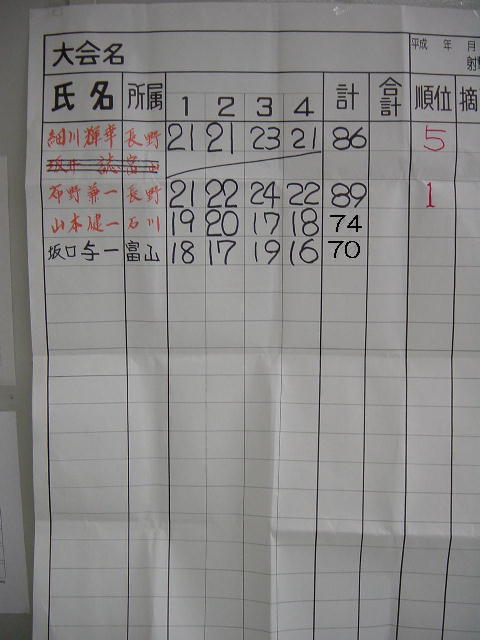 大会名 平成 年 月
射
氏名 所属 1 2 3 4 計 合計 順位 摘
細川 輝幸 長野 21 21 23 21 86 5
坂井 誠 富山
石野 兼一 長野 21 22 24 22 89 1
山本 健一 石川 19 20 17 18 74
坂口 与一 富山 18 17 19 16 70